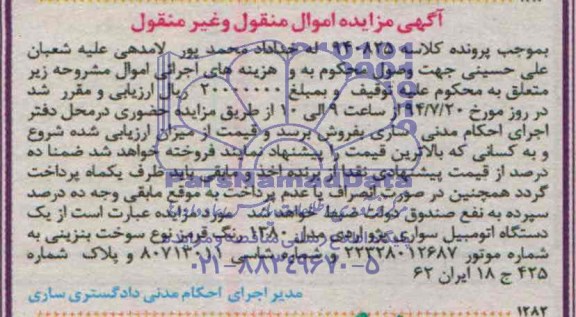 آگهی مزایده اموال منقول وغیر منقول
بموجب پرونده کلاسه ۹۴۰۸۲۵ له خداداد محمد پور لامدهی علیه شعبان
علی حسینی جهت وصول محکوم به و هزینه های اجرائی اموال مشروحه زیر
متعلق به محکوم علیه توقیف و بمبلغ ۲۰۰۰۰۰۰۰ ریال ارزیابی و مقرر شد
در روز مورخ ۹۴/۷/۲۰ از ساعت ۹ الی ۱۰ از طریق مزایده حضوری درمحل دفتر
اجرای احکام مدنی ساری بفروش برسد و قیمت از میزان ارزیابی شده شروع
و به کسانی که بالاترین قیمت را پیشنهاد نمایند فروخته خواهد شد ضمنا ده
درصد از قیمت پیشنهادی نقدا از برنده اخذ و مابقی باید ظرف یکماه پرداخت
گردد همچنین در صورت انصراف یا عدم پرداخت به موقع مابقی وجه ده درصد
سپرده به نفع صندوق دولت ضبط خواهد شد مورد مزایده عبارت است از یک
دستگاه اتومبیل سواری پژو آردی مدل ۱۳۸۰ رنگ قرمز نوع سوخت بنزینی به
شماره موتور ۲۲۳۲۸۰۱۲۶۸۷ و شماره شاسی ۸۰۷۱۳۰۱۱ و پلاک شماره
۴۲۵ ج ۱۸ ایران ۶۲
مدیر اجرای احکام مدنی دادگستری ساری
۱۲۸۲
ParsNamadData
۰۲۱-۸۸۳۴۹۶۷۰-۵